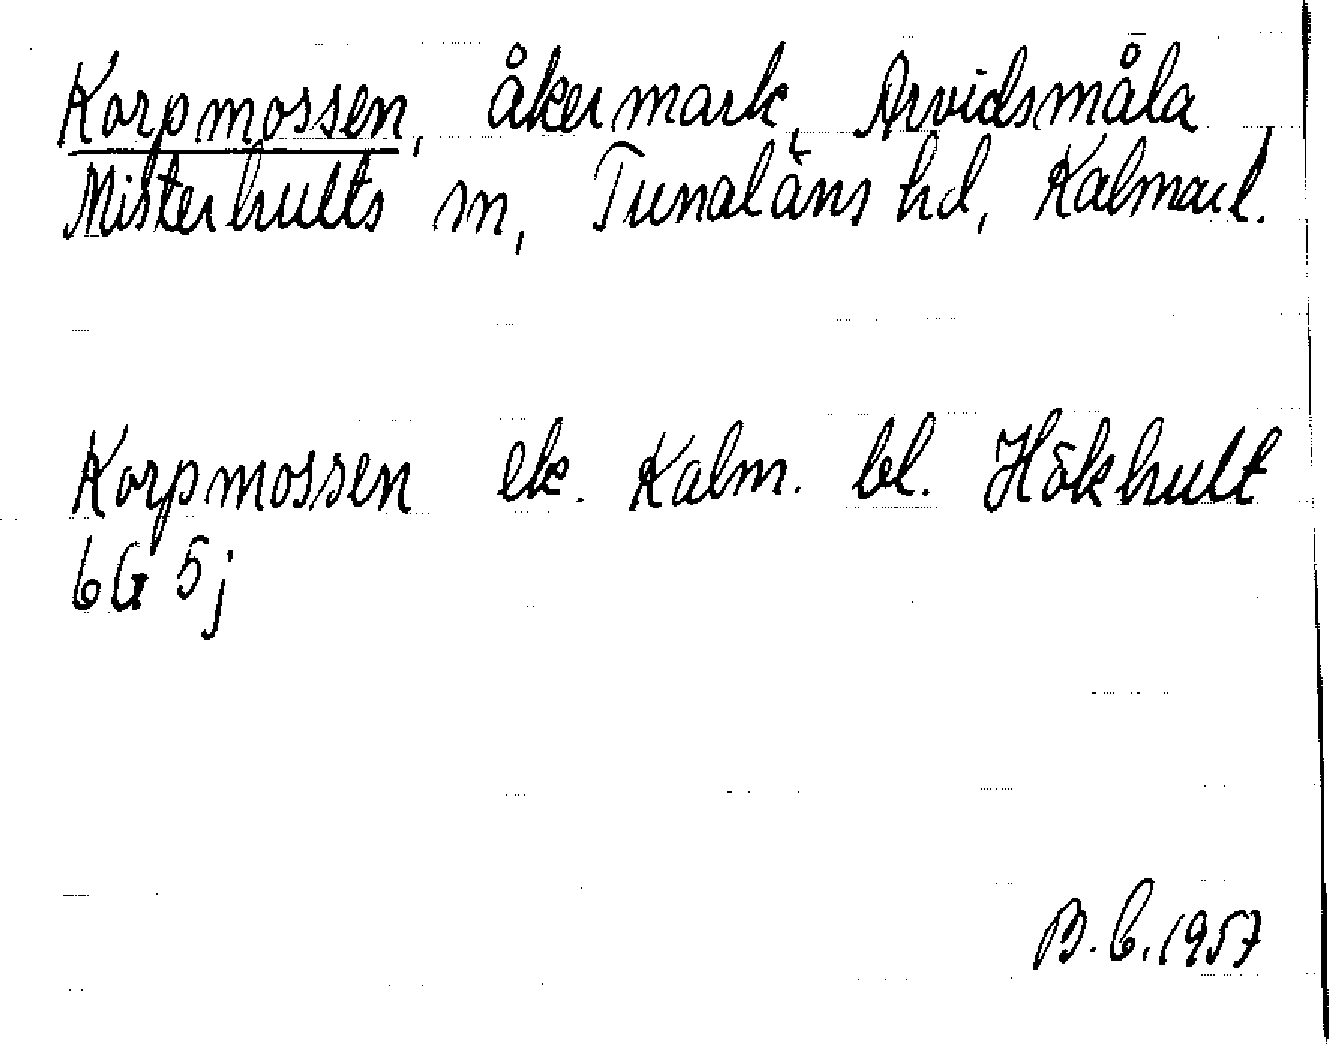 Korpmossen, åkermark, Arvidsmåla,
Misterhults sn, Tunaläns hd, Kalmar l.
Korpmossen ek. Kalm. bl. Hökhult
6G 5j
B. C. 1957